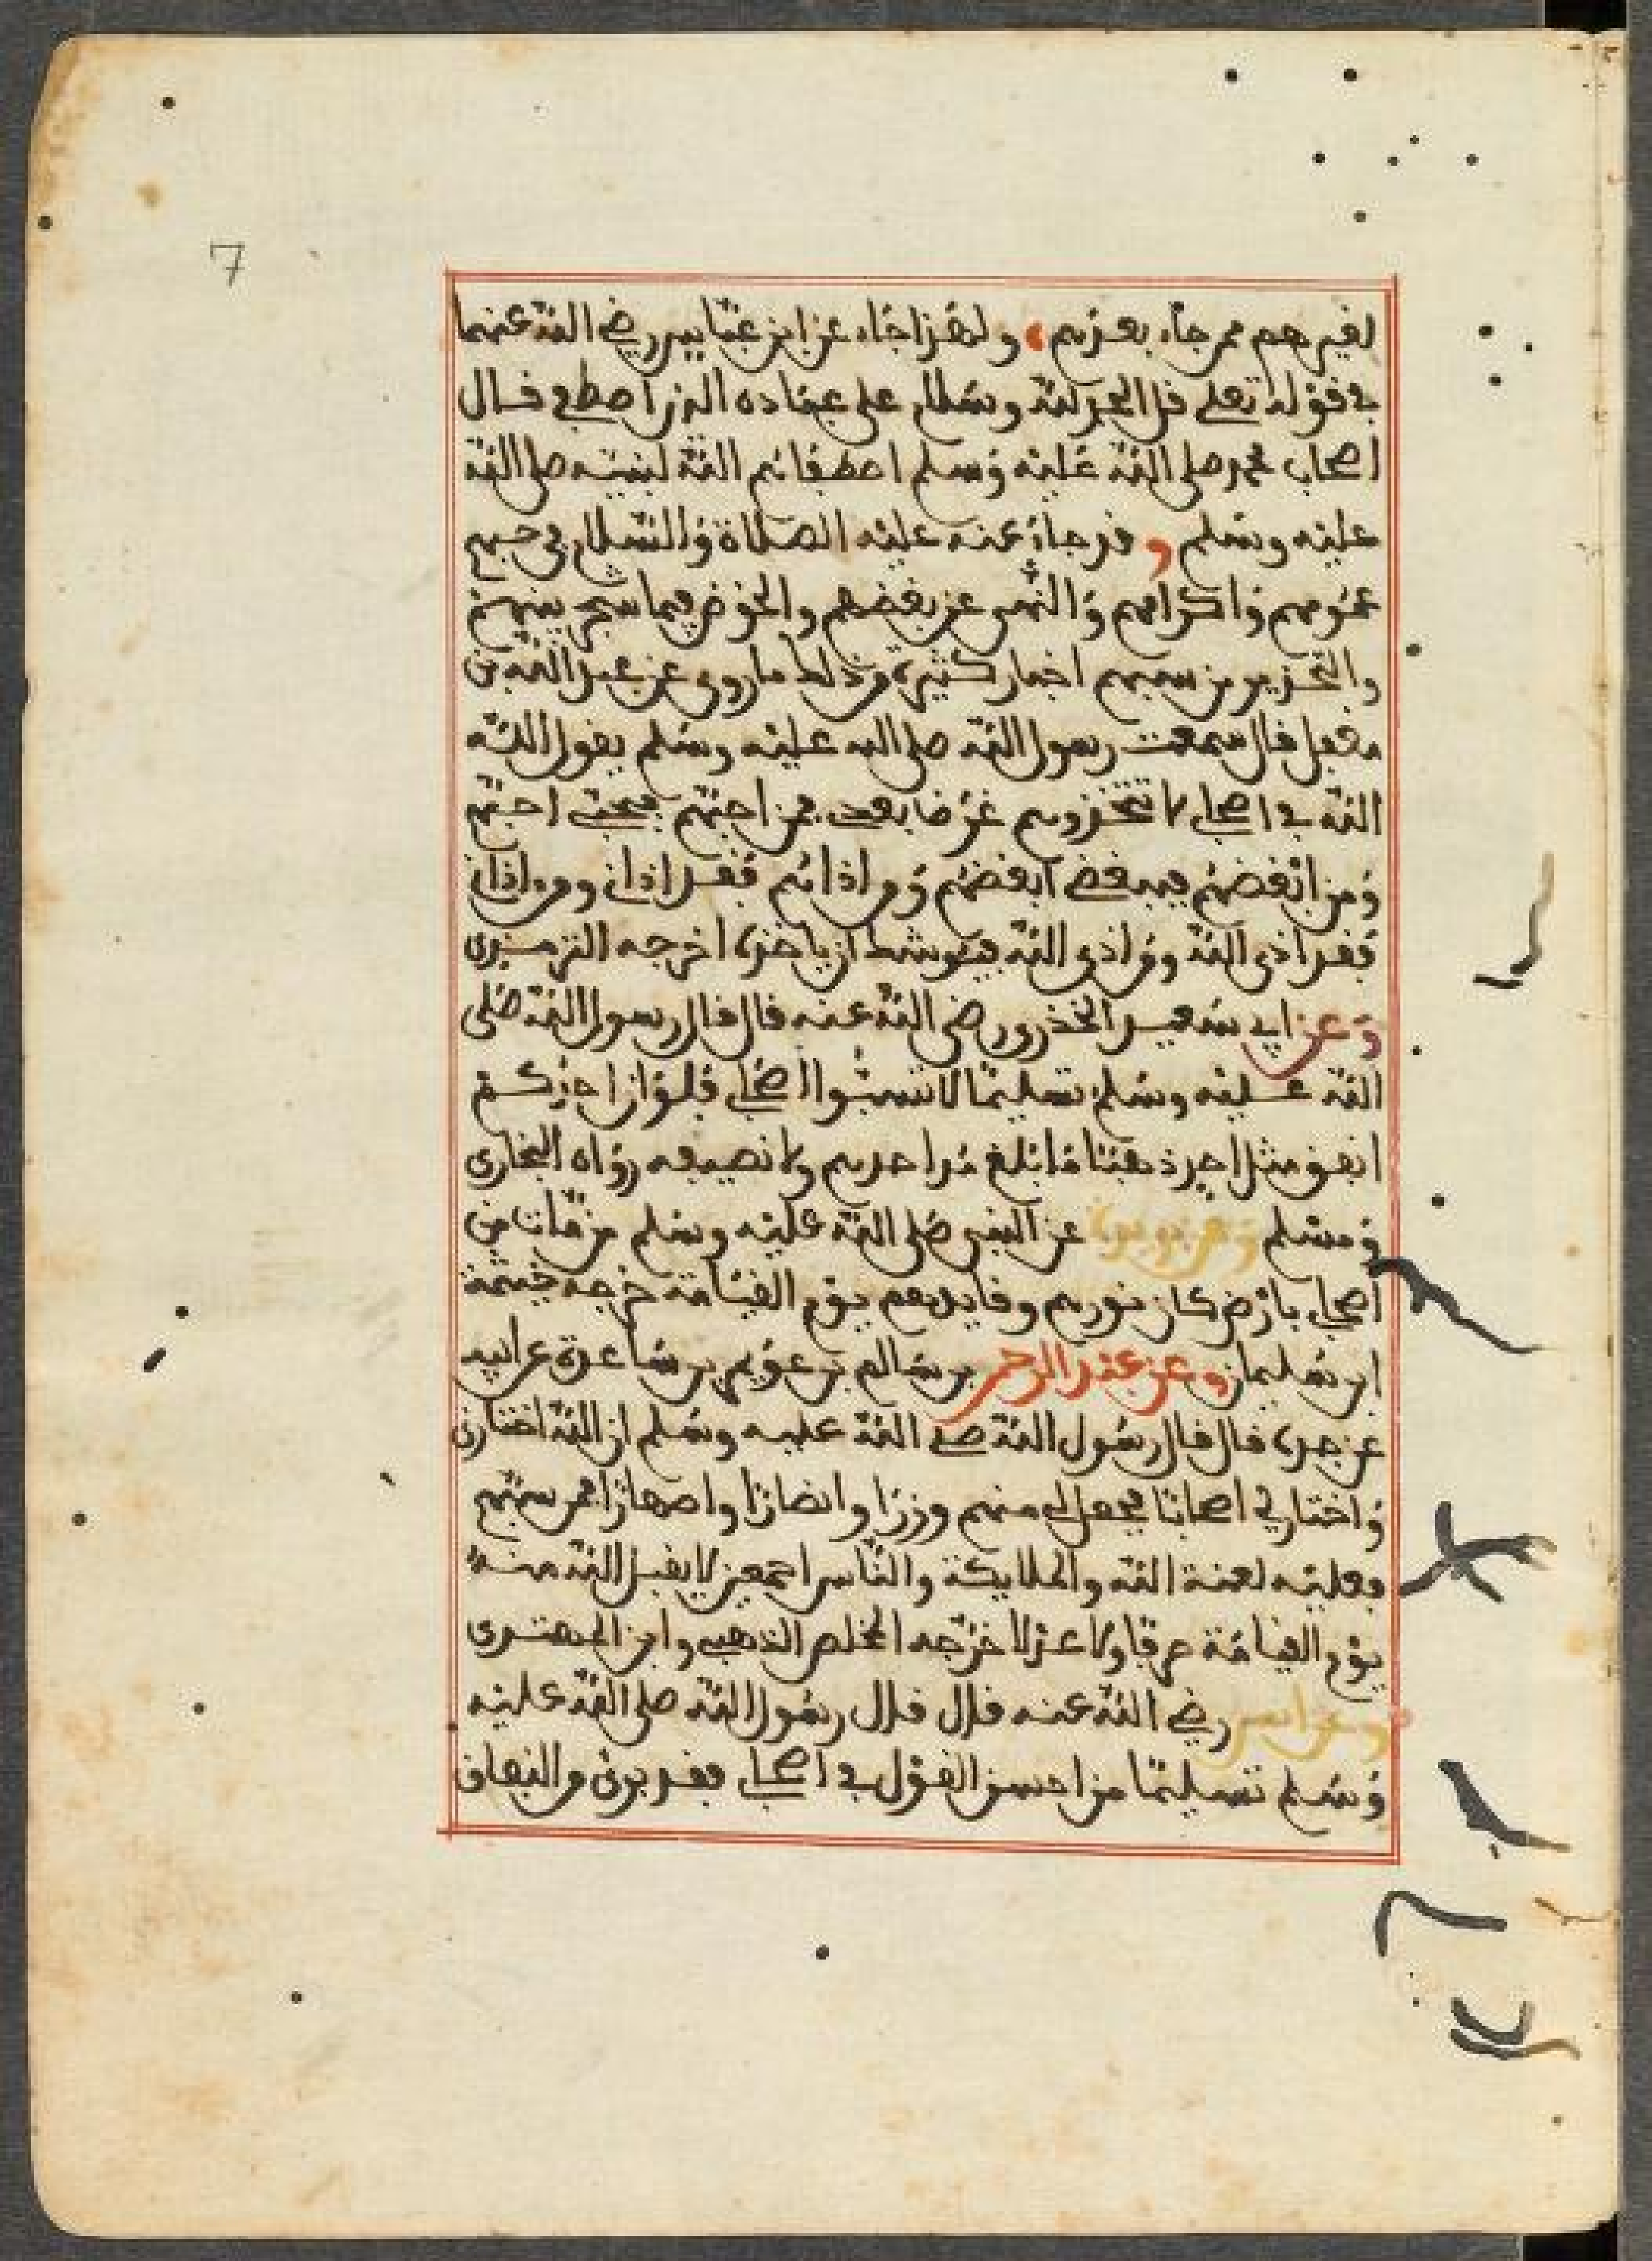 7
لغيرهم ممن جاء بعدهم ولهذا جاء عن ابن عباس رضي الله عنهما
في قوله تعلى قل الحمد لله وسلام على عباده الذين اصطفى قال
اصحاب محمد صلى الله عليه وسلم اصطفاهم الله لنبيه صلى الله
عليه وسلم وقد جاء عنه عليه الصلاة والسلام في حبهم
عنوهم واكرامهم والنهي عن بغضهم والخوض فيما شجر بينهم
والتحذير من سبهم اخبار كثيرة من ذلك ما روي عن عبد الله بن
مغفل قال سمعت رسول الله صلى الله عليه وسلم يقول الله
الله في اصحابي لا تتخذوهم غرضا بعدي فمن احبهم فبحبي احبهم
ومن ابغضهم فببغضي ابغضهم ومن اذاهم فقد اذاني ومن اذاني
فقد اذى الله ومن اذى الله فيوشك ان ياخذه اخرجه الترمذي
وعن ابي سعيد الخذري رضي الله عنه قال قال رسول الله صلى
الله عليه وسلم تسليما لا تسبوا اصحابي فلو ان احدكم
انفق مثل احد ذهبا ما بلغ مد احدهم ولا نصيفه رواه البخاري
ومسلم وعن بريدة عن النبي صلى الله عليه وسلم من مات من
اصحابي بارض كان نورهم وقايدهم يوم القيامة خرجه خيثمة
ابن سليمان وعن عبد الرحمن بن سالم بن عويم بن ساعدة عن ابيه
عن جده قال قال رسول الله صلى الله عليه وسلم ان الله اختارني
واختار لي اصحابا فجعل لي منهم وزرا وانصارا واصهارا فمن سبهم
فعليه لعنة الله والملايكة والناس اجمعين لا يقبل الله منه
يوم القيامة صرفا ولا عدلا خرجه المخلص الذهبي وابن المهتدي
وعن انس رضي الله عنه قال قال رسول الله صلى الله عليه
وسلم تسليما من احسن القول في اصحابي فقد برئ من النفاق